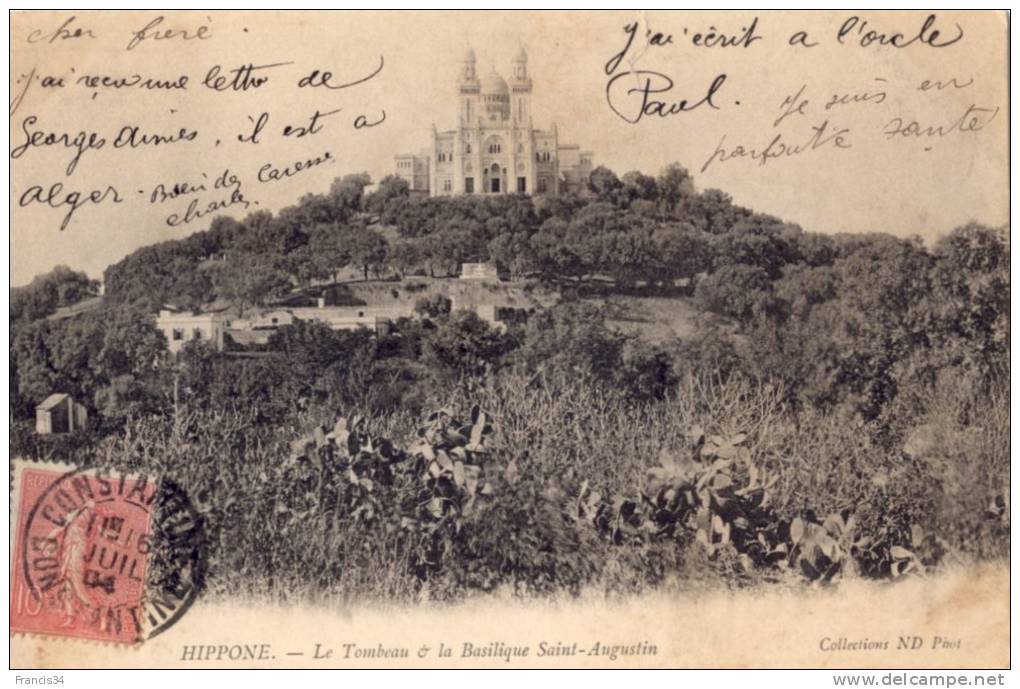 cher freré.
J'ai reçu une letto de
Georges Aimes, il est a
Alger - Bien des Caresse
charles.
J'ai ecrit a l'oncle
Paul. Je suis en
parfaite sante
HIPPONE. — Le Tombeau & la Basilique Saint-Augustin
Collections ND Phot
CONSTANTINE
BONE
16
JUIL
04
10
Francis34
www.delcampe.net